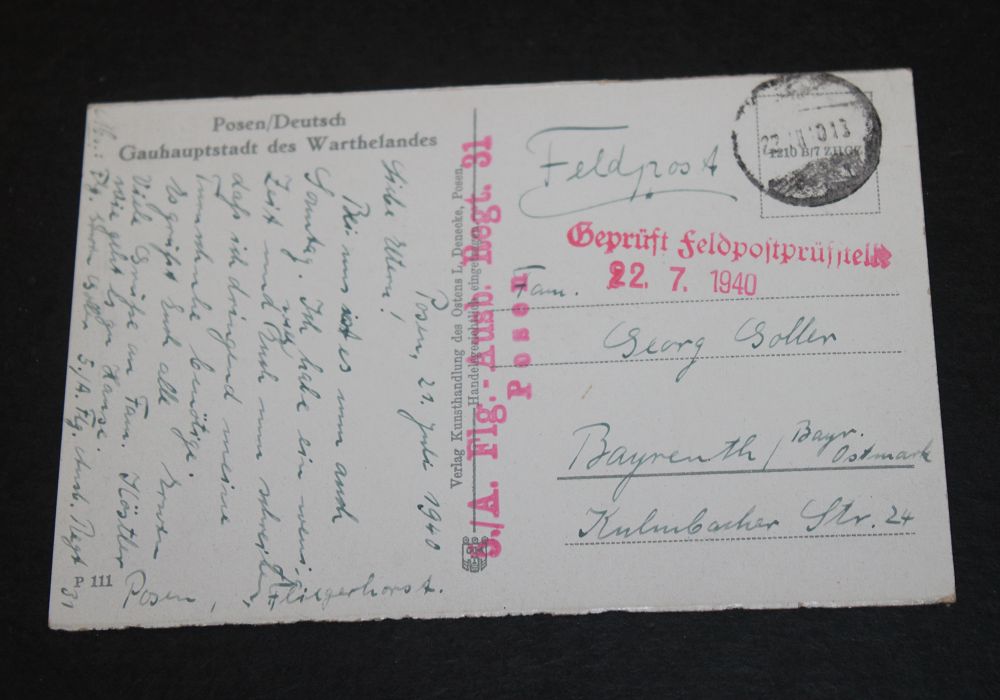 Posen/Deutsch
Gauhauptstadt des Warthelandes
Posen, 21. Juli 1940
Liebe Eltern!
Bei uns ist es nun auch
Sonntag. Ich habe ein wenig
Zeit und Euch nun schreiben,
daß ich dringend meine
benötige.
Es grüßt Euch alle Erwin
Viele Grüße an Fam. Köstler
Wie geht es zu Hause.
Goller 5./A. Flg. Ausb. Regt 31
Posen, Fliegerhorst.
P 111
Verlag Kunsthandlung des Ostens L. Denecke, Posen
Handelsgerichtlich eingetragen
5./A. Flg.-Ausb. Regt. 31
Posen
Feldpost
1210 B/7 ZIIGX
Geprüft Feldpostprüfstelle
22. 7. 1940
Fam.
Georg Goller
Bayreuth / Bayr. Ostmark
Kulmbacher Str. 24